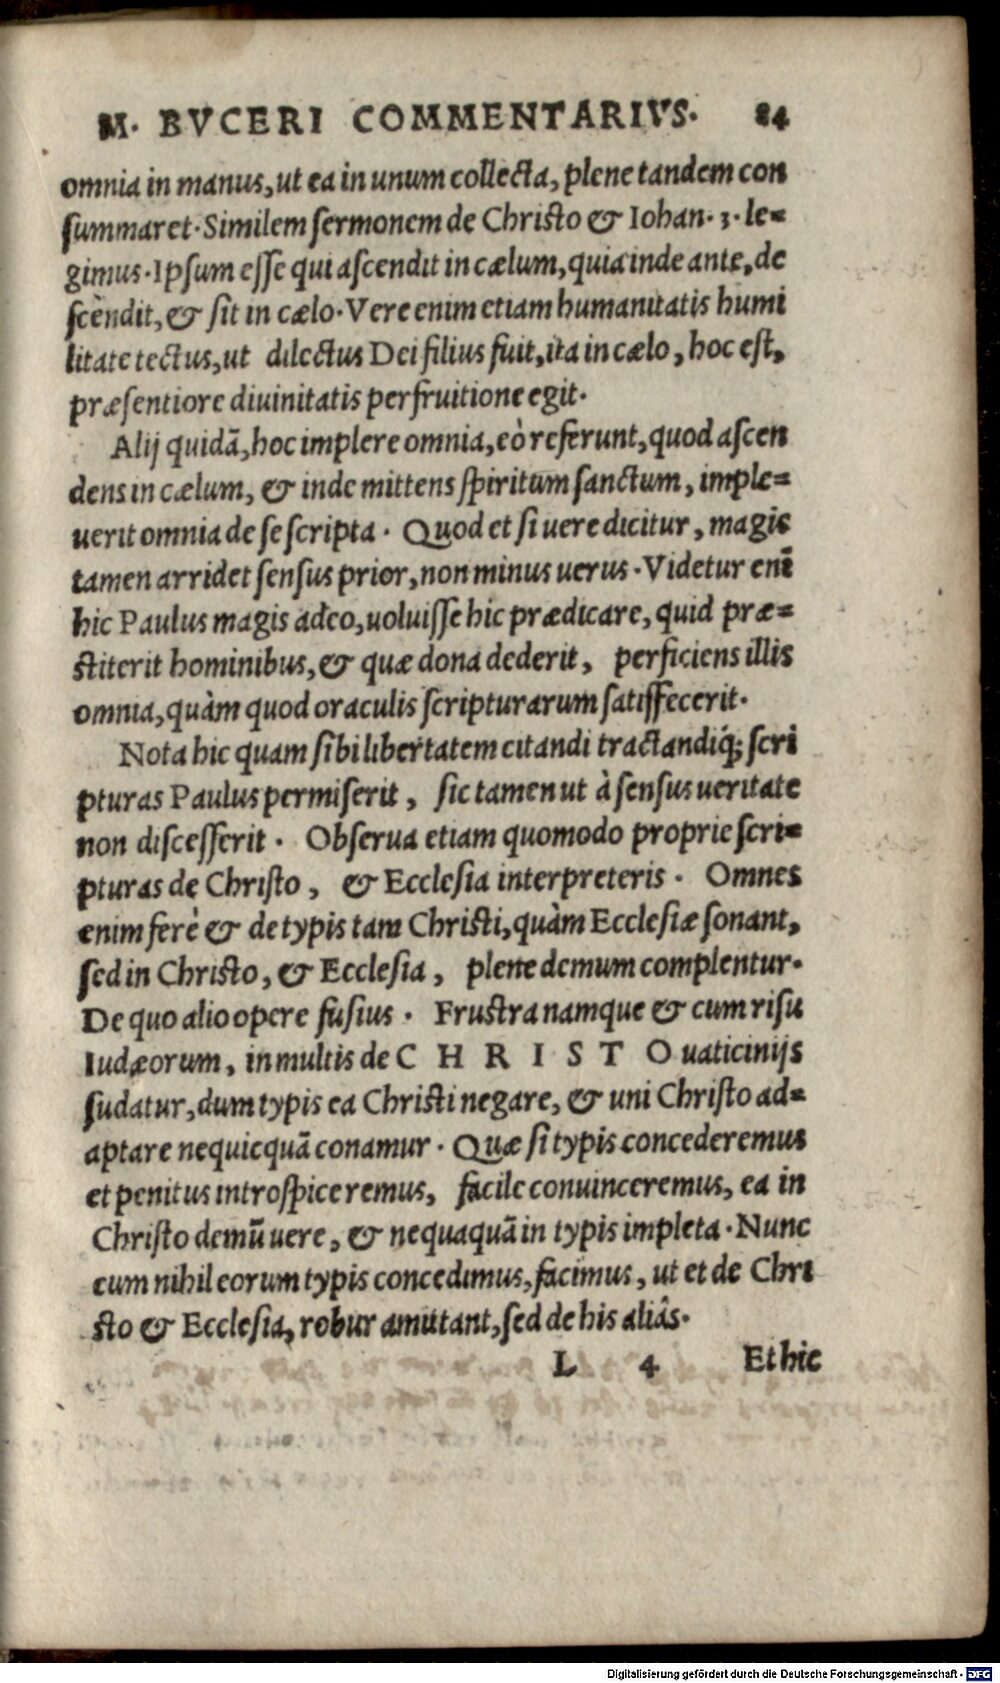 M. BVCERI COMMENTARIVS. 84
omnia in manus, ut ea in unum collecta, plene tandem con
summaret. Similem sermonem de Christo & Iohan. 3. le=
gimus. Ipsum esse qui ascendit in cælum, quia inde ante, de
scèndit, & sit in cælo. Vere enim etiam humanitatis humi
litate tectus, ut dilectus Dei filius fuit, ita in cælo, hoc est,
præsentiore divinitatis perfruitione egit.
Alij quidã, hoc implere omnia, eò referunt, quod ascen
dens in cælum, & inde mittens spiritum sanctum, imple=
uerit omnia de se scripta. Quod et si uere dicitur, magis
tamen arridet sensus prior, non minus uerus. Videtur enĩ
hic Paulus magis adeo, uoluisse hic prædicare, quid præ=
stiterit hominibus, & quæ dona dederit, perficiens illis
omnia, quàm quod oraculis scripturarum satisfecerit.
Nota hic quam sibi libertatem citandi tractandiq́; scri
pturas Paulus permiserit, sic tamen ut à sensus ueritate
non discesserit. Obserua etiam quomodo proprie scri=
pturas de Christo, & Ecclesia interpreteris. Omnes
enim ferè & de typis tam Christi, quàm Ecclesiæ sonant,
sed in Christo, & Ecclesia, plene demum complentur.
De quo alio opere fusius. Frustra namque & cum risu
Iudæorum, in multis de C H R I S T O uaticinijs
sudatur, dum typis ea Christi negare, & uni Christo ad=
aptare nequicquã conamur. Quæ si typis concederemus
et penitus introspiceremus, facile conuinceremus, ea in
Christo demũ uere, & nequaquã in typis impleta. Nunc
cum nihil eorum typis concedimus, facimus, ut et de Chri
sto & Ecclesia, robur amittant, sed de his aliâs.
L 4 Et hic
Digitalisierung gefördert durch die Deutsche Forschungsgemeinschaft - DFG